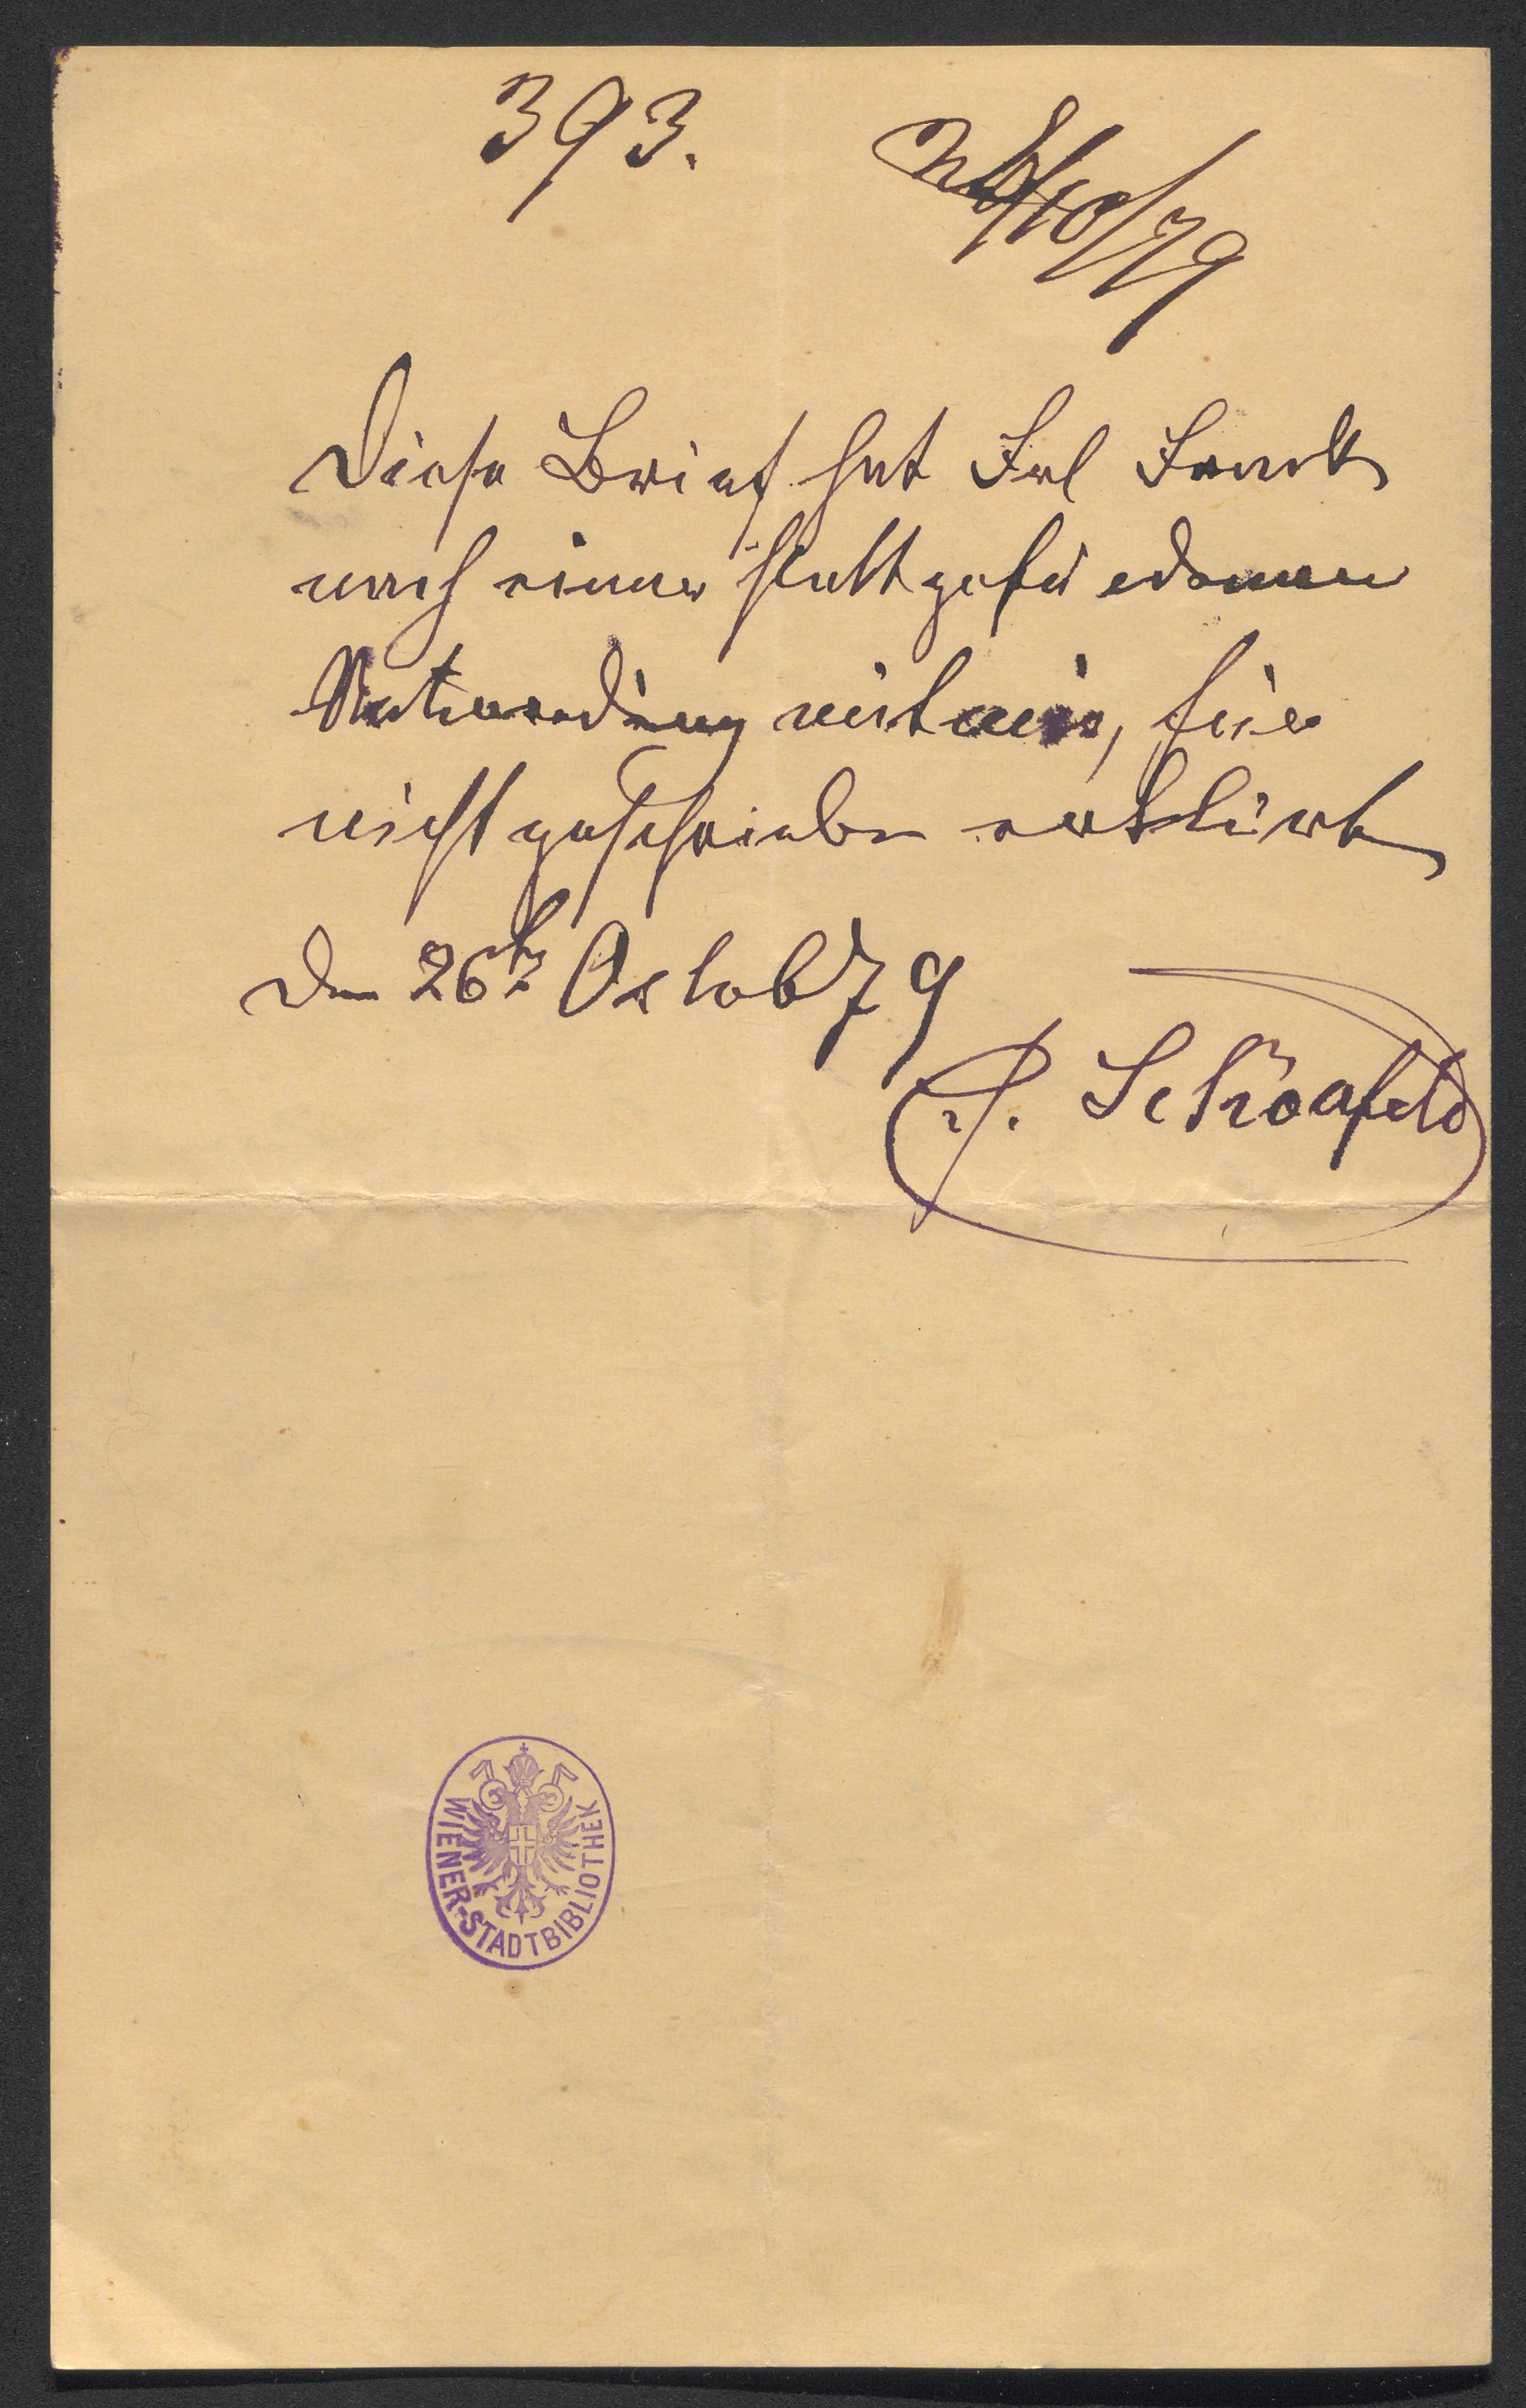 393.
26/10/79
Diese Brief hat Frl Frank
nach einer stattgefundenen
Unterredung mit mir, für
nicht geschrieben erklärt
Den 26t Octob 79
Schönfeld
WIENER-STADTBIBLIOTHEK